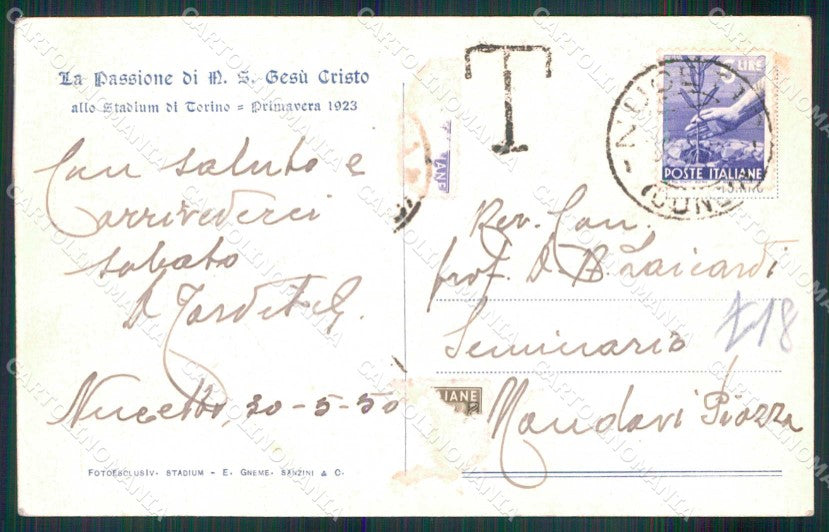 La Passione di N. S. Gesù Cristo
allo Stadium di Torino = Primavera 1923
Con saluto e
arrivederci
sabato
Nucetto, 30-5-50
FOTOESCLUSIV. STADIUM - E. GNEME. SANZINI & C.
T
5 LIRE
POSTE ITALIANE
NUCETTO
(CUNEO)
Rev. Can.
prof. D. B.
Seminario
Mondovì Piazza
718
IANE
CARTOLINOMANIA